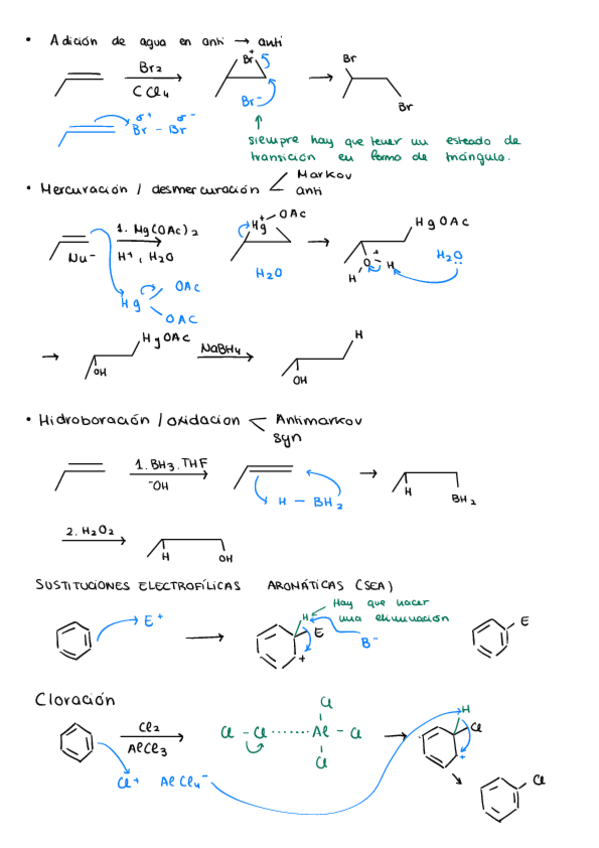 • Adición de agua en anti → anti
Br2
CCl4
Br+
Br-
Br
Br
σ+ σ-
Br - Br
siempre hay que tener un esteado de
transición en forma de triángulo.
• Mercuración / desmercuración < Markov
anti
Nu-
1. Mg(OAc)2
H+, H2O
Hg+ - OAc
H2O
HgOAc
O+ - H
H
H2O
Hg
OAc
OAc
HgOAc
OH
NaBH4
H
OH
• Hidroboración / oxidacion < Antimarkov
syn
1. BH3. THF
-OH
H - BH2
H
BH2
2. H2O2
H
OH
SUSTITUCIONES ELECTROFÍLICAS AROMÁTICAS (SEA)
E+
H
E
+
Hay que hacer
una eliminación
B-
E
Cloración
Cl2
AlCl3
Cl+ AlCl4-
Cl
Cl - Cl ······ Al - Cl
Cl
H
Cl
+
Cl